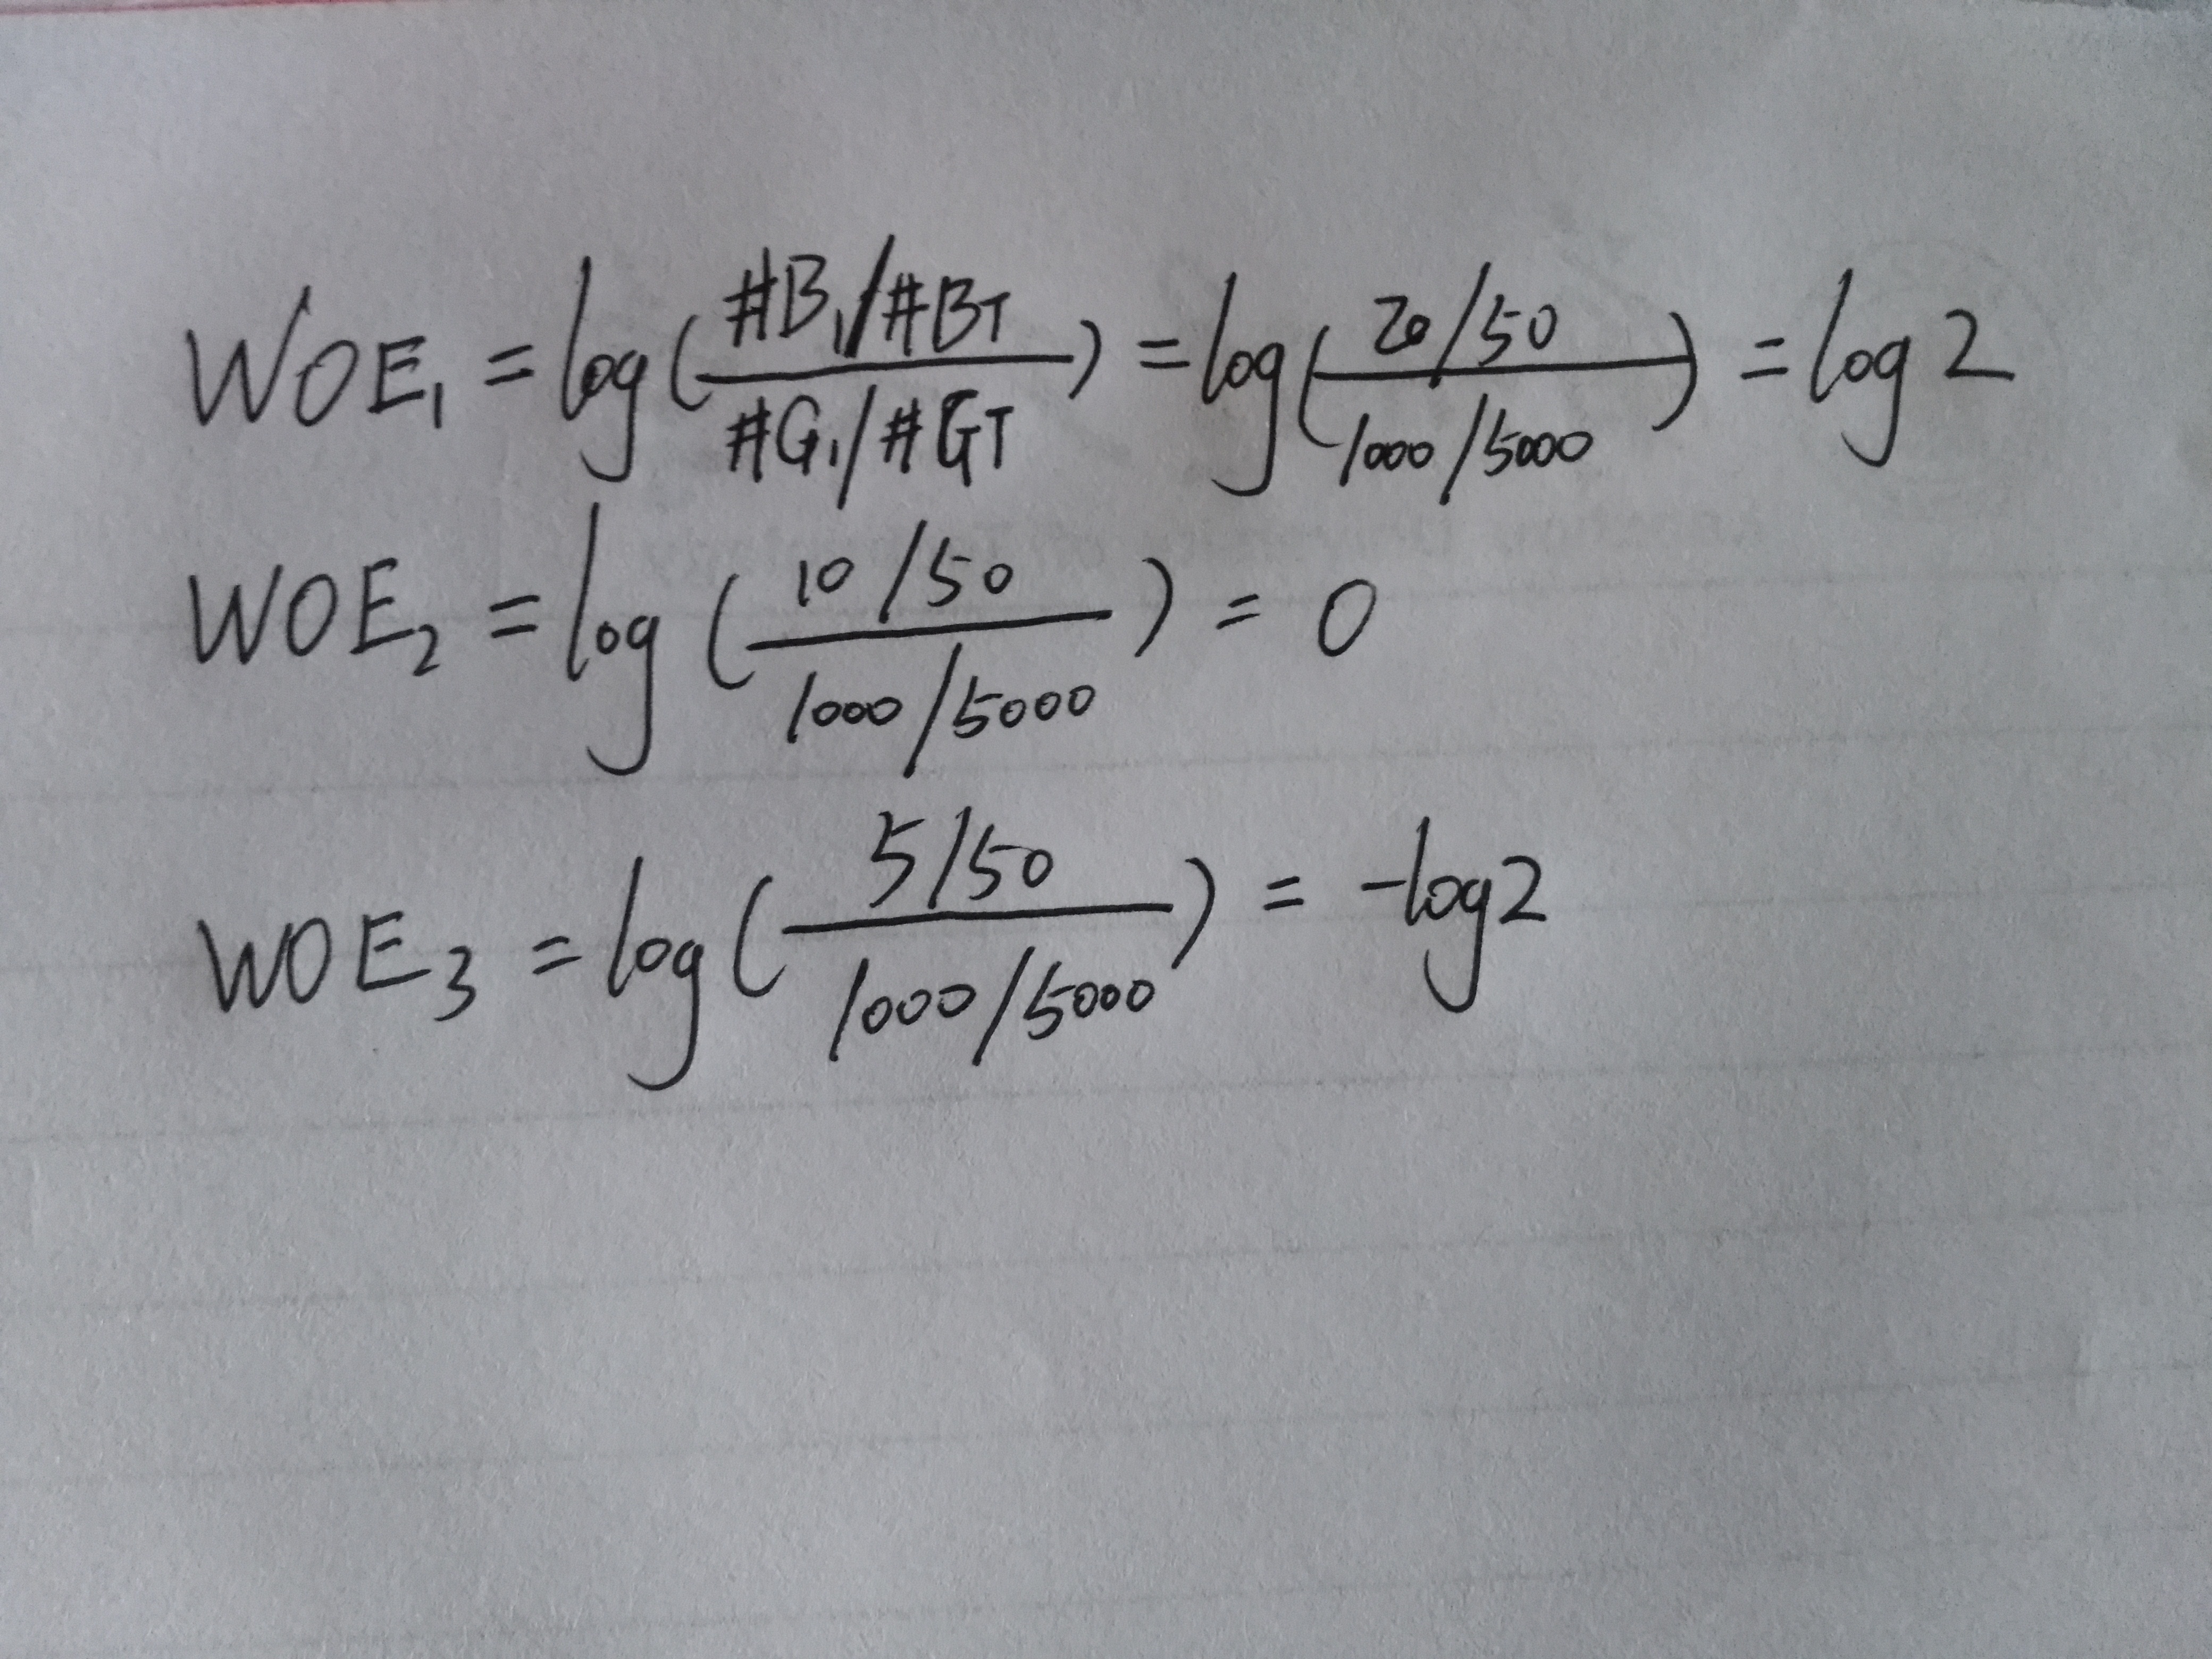 WOE₁ = log(#B₁/#BT / #G₁/#GT) = log(20/50 / 1000/5000) = log 2
WOE₂ = log(10/50 / 1000/5000) = 0
WOE₃ = log(5/50 / 1000/5000) = -log2